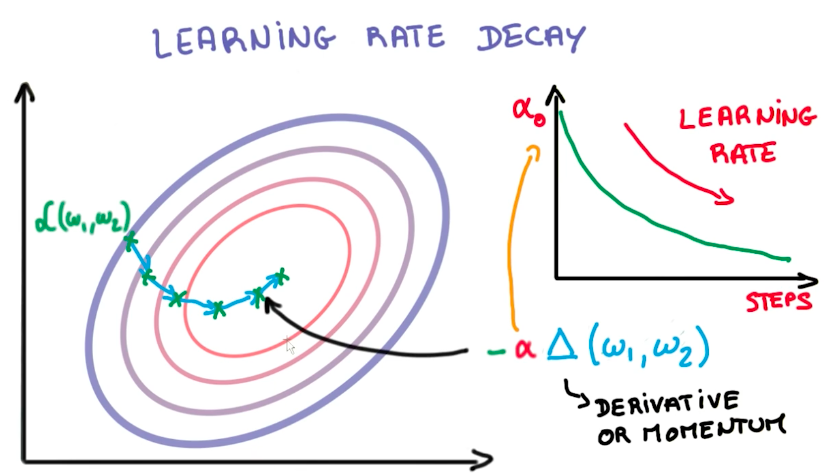 LEARNING RATE DECAY
α₀
LEARNING
RATE
STEPS
ℒ(ω₁,ω₂)
- α Δ (ω₁, ω₂)
DERIVATIVE
OR MOMENTUM